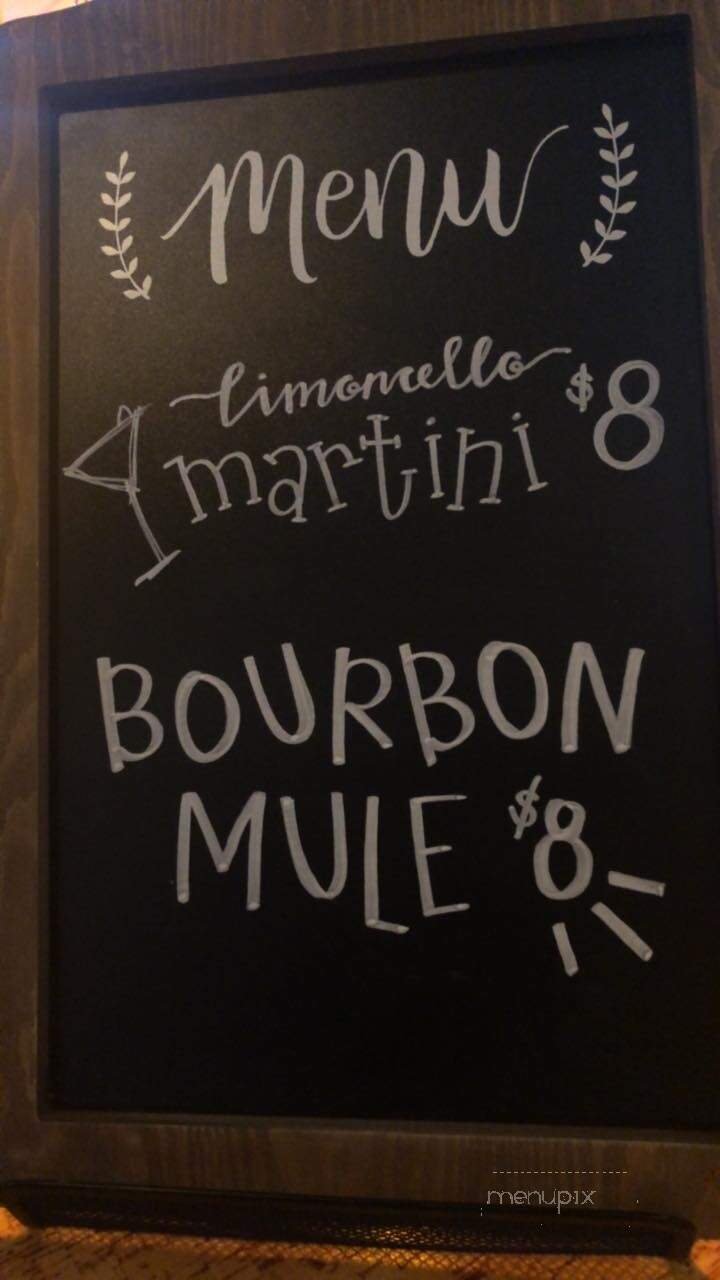 menu
limoncello
martini $8
BOURBON
MULE $8
menupix